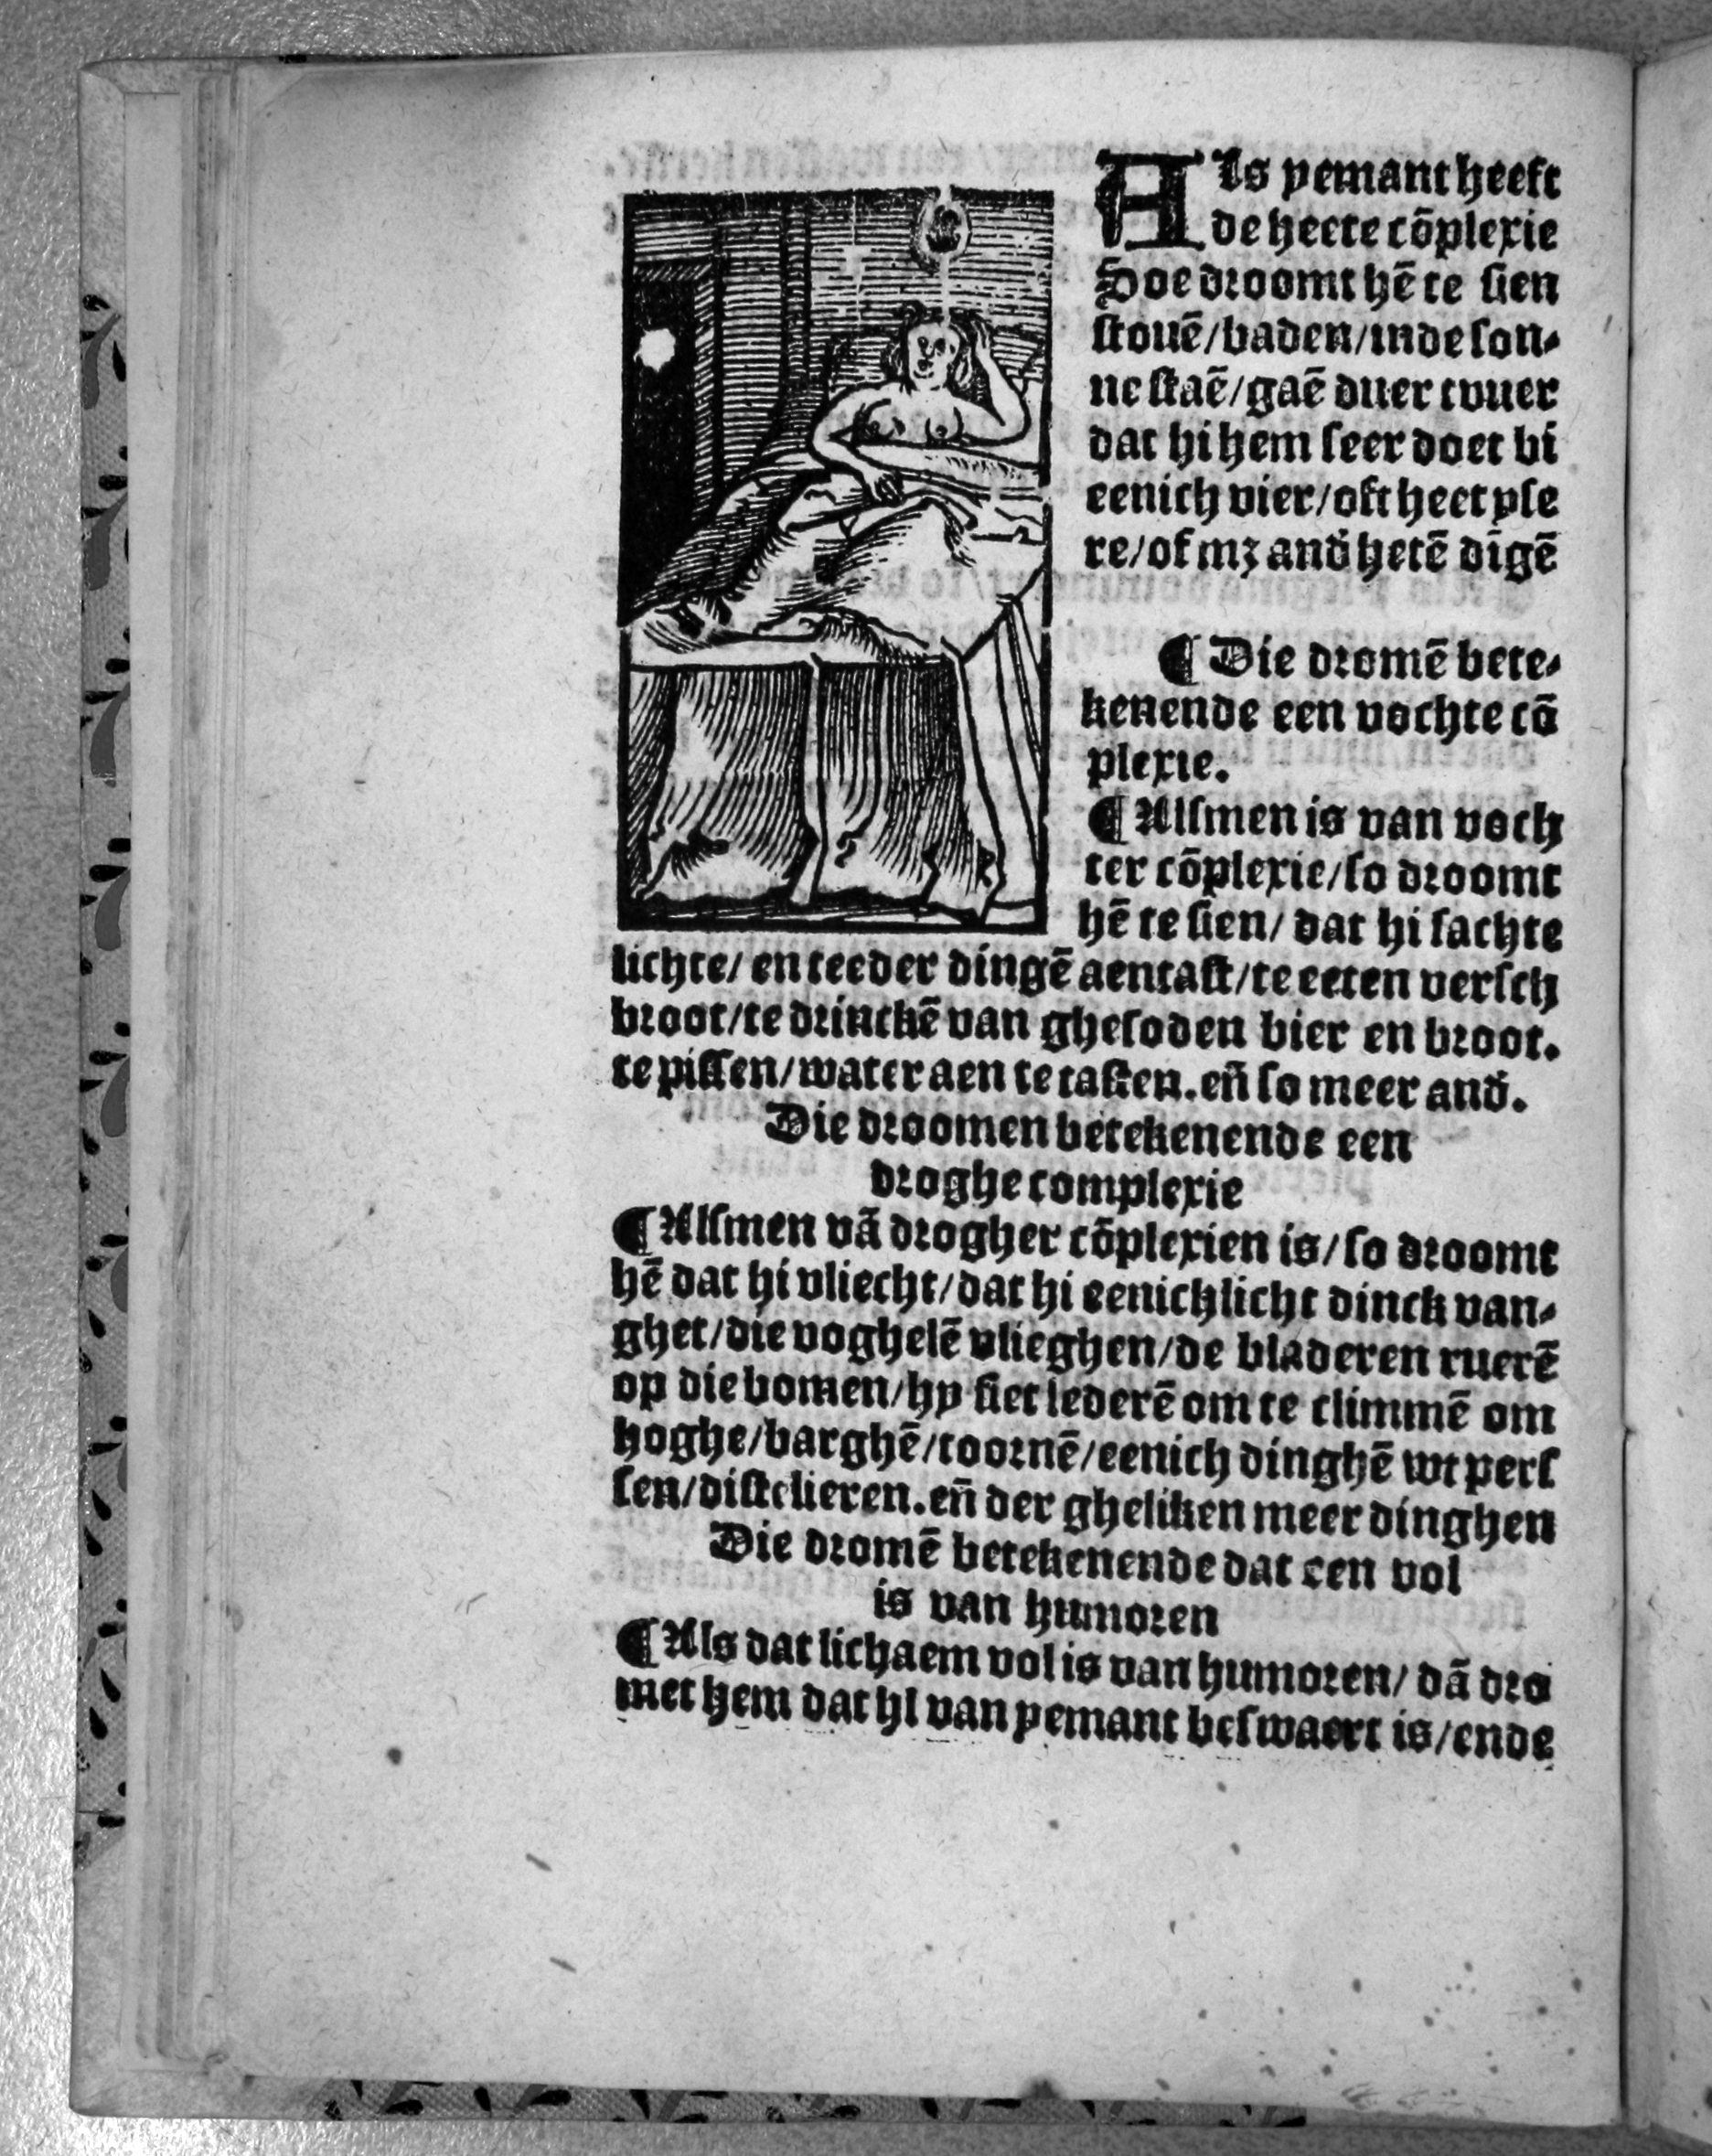 Als yemant heeft
de heete cōplexie
Soe droomt hē te sien
stouē/baden/inde son⸗
ne staē/gaē duer tvuer
dat hi hem seer doet bi
eenich vier/oft heet yse
re/of mꝫ andˀ hetē dīgē
¶ Die dromē bete⸗
kenende een vochte cō
plexie.
¶ Alsmen is van voch
ter cōplexie/so droomt
hē te sien/ dat hi sachte
lichte/ en teeder dingē aentast/te eeten versch
broot/te drinckē van ghesoden bier en broot.
te pissen/water aen te tasten.en̄ so meer andˀ.
Die droomen betekenende een
droghe complexie
¶ Alsmen vā drogher cōplexien is/so droomt
hē dat hi vliecht/dat hi eenich licht dinck van⸗
ghet/die voghelē vlieghen/de bladeren ruerē
op die bomen/hy siet lederē om te climmē om
hoghe/barghē/toornē/eenich dinghē wt pers
sen/distelieren.en̄ der gheliken meer dinghen
Die dromē betekenende dat een vol
is van humoren
¶ Als dat lichaem vol is van humoren/ dā dro
met hem dat hi van yemant beswaert is/ende